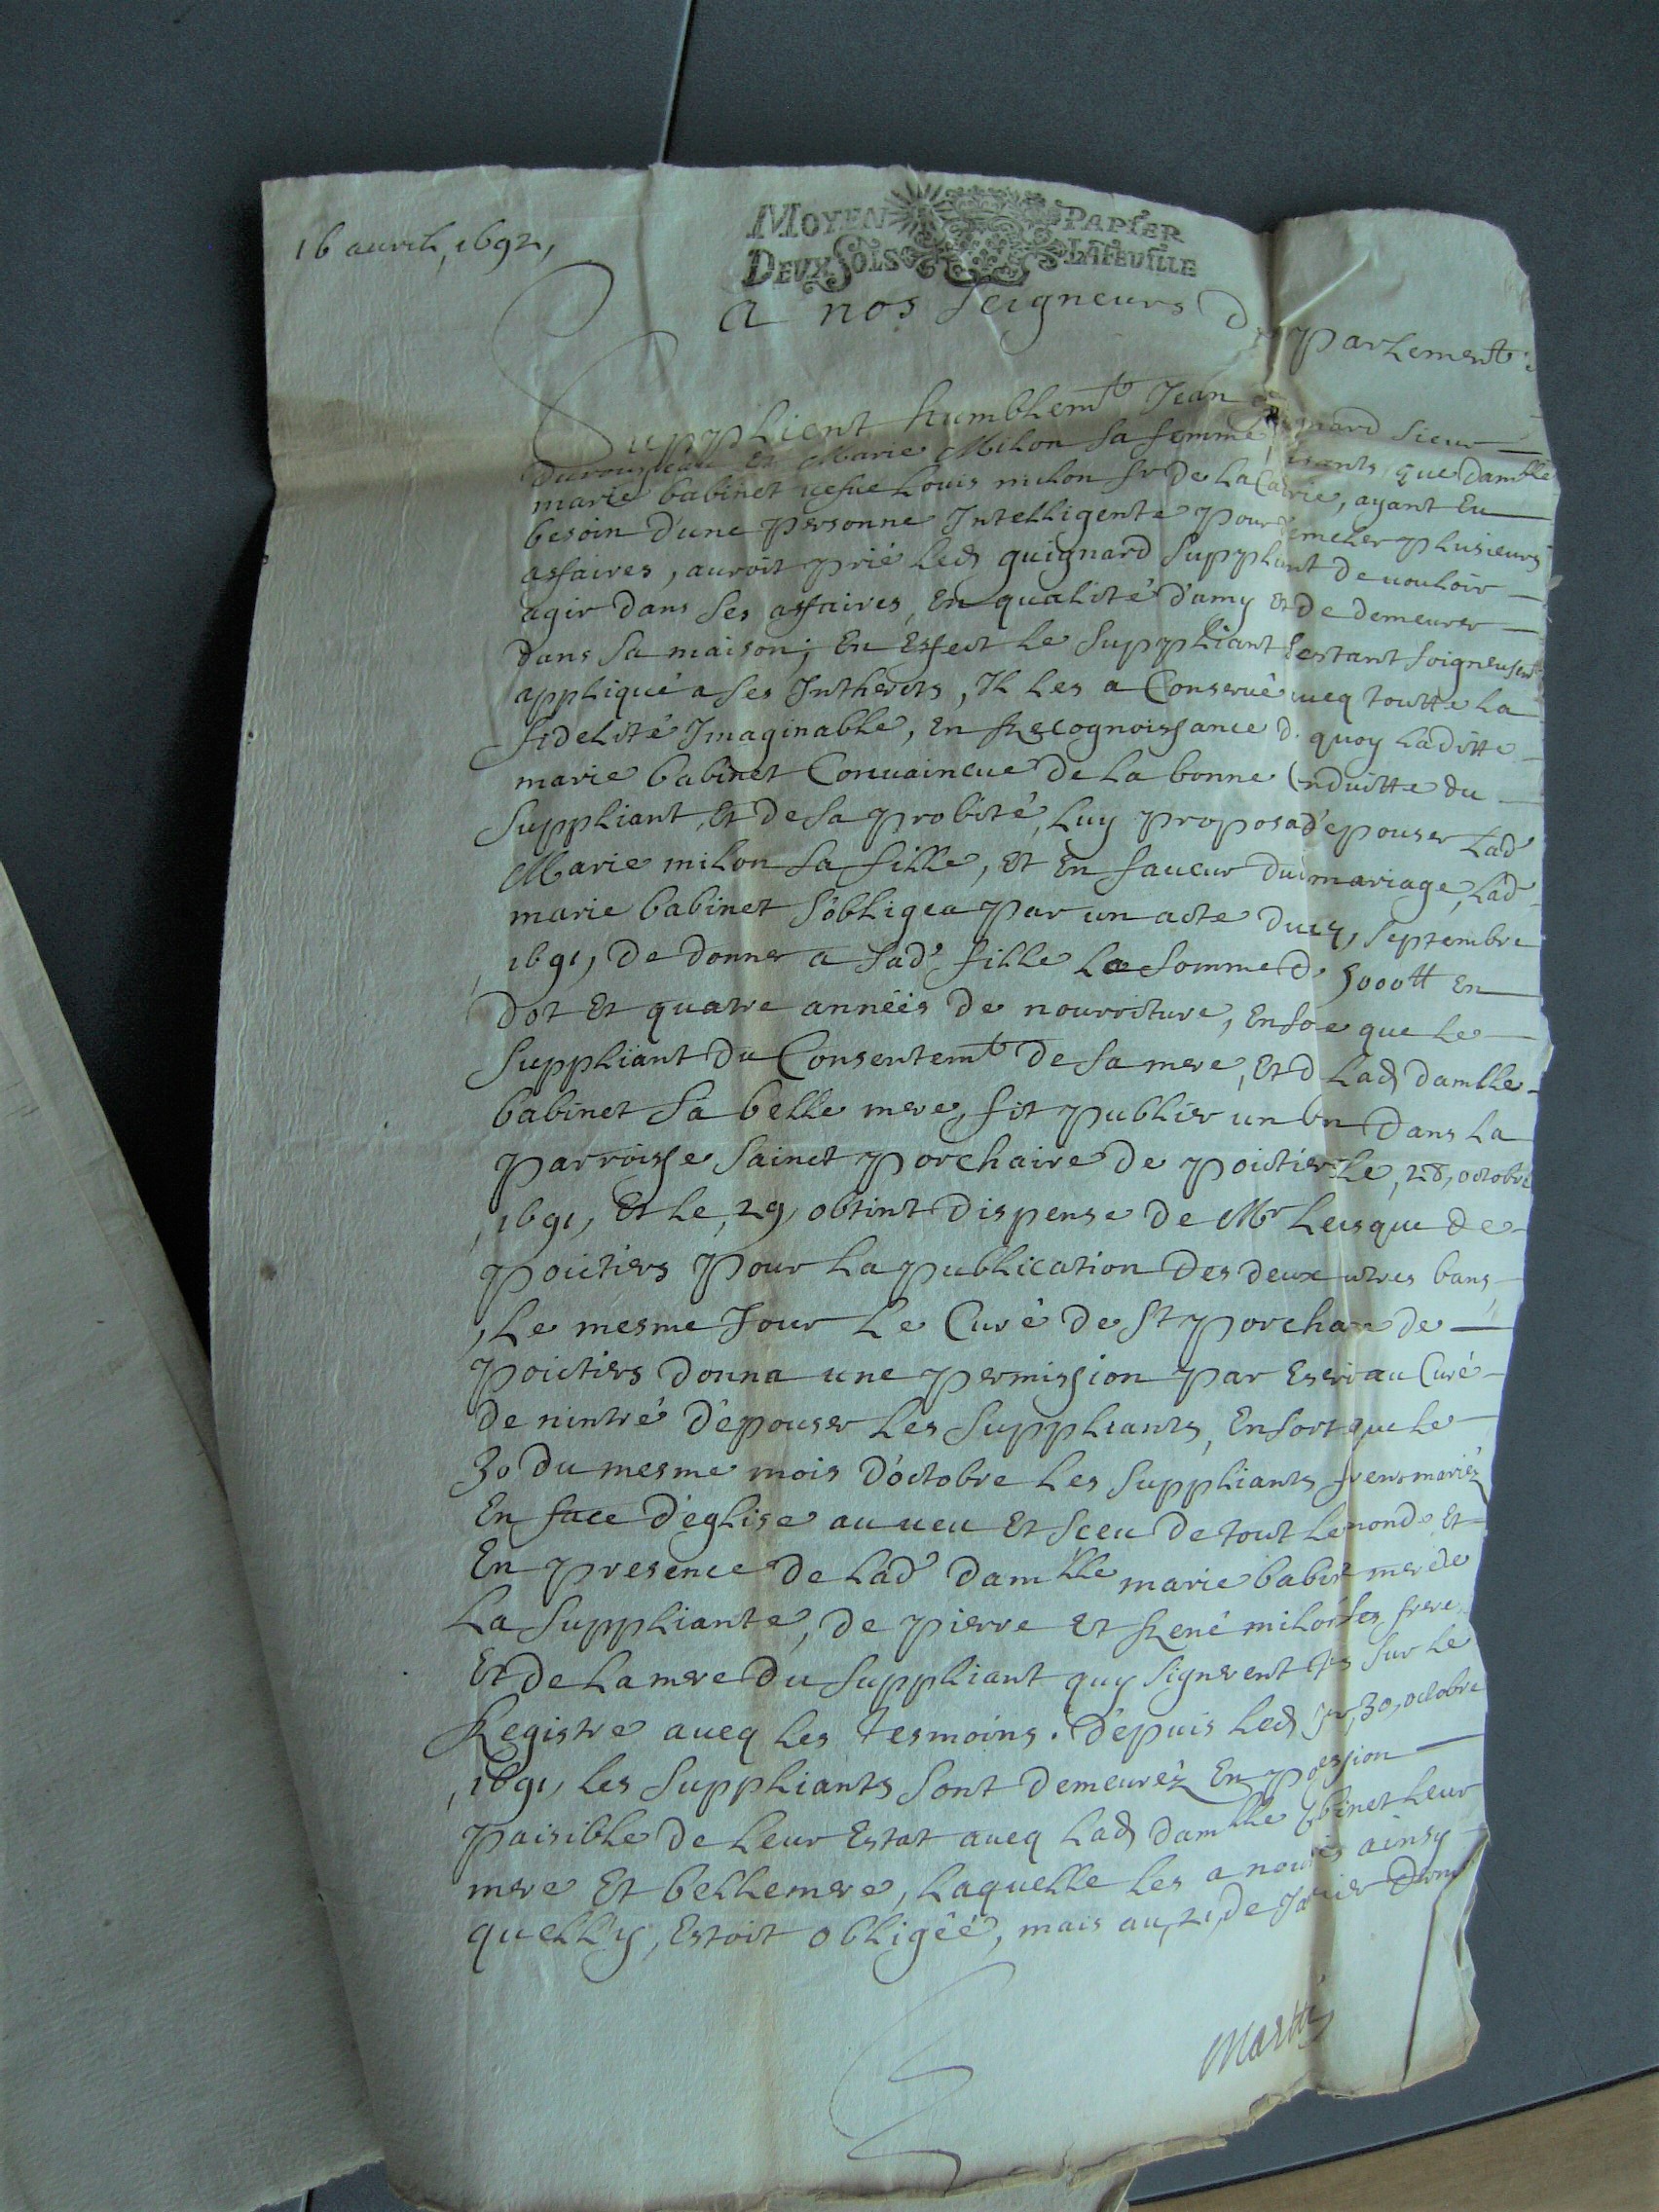 16 auril, 1692,
MOYEN PAPIER
DEUX SOLS LA FEUILLE
a nos Seigneurs de parlement
Supplient humblemt Jean guignard sieur
Et Marie Milon sa femme, disants que damlle
marie babinet uefue Louis milon sr de La ayant Eu
besoin d'une personne Intelligente pour demeler plusieurs
affaires, auroit prié led guignard suppliant de uouloir
agir dans ses affaires, En qualité d'amy Et de demeurer
dans sa maison; En Effect le suppliant s'estant soigneusemt
appliqué a ses Intherets, Il les a Conserué aueq toutte la
fidelité Imaginable, En Recognoissance de quoy laditte
marie babinet Conuaincue de la bonne Conduitte du
suppliant, Et de sa probité, luy proposa d'epouser lad
Marie milon sa fille, Et En faueur du mariage, lad
marie babinet s'obligea par un acte du septembre
1691, de donner a sad fille la somme de 5000tt En
dot Et quatre annéés de nourriture, En sorte que le
suppliant du Consentemt de sa mere, Et de lad damlle
babinet sa belle mere, fit publier un ban dans la
parroisse sainct porchaire de poictiers le, 28, octobre
1691, Et le, 29, obtint dispense de Mr leuesque de
poictiers pour la publication des deux autres bans,
le mesme Jour le Curé de St porchaire de
poictiers donna une permission par Escrit au Curé
de nintré d'épouser les suppliants, En sorte que le
30 du mesme mois d'octobre les suppliants furent mariéz
En face d'église au ueu Et sceu de tout le monde Et
En presence de lad damlle marie babinet mere de
la suppliante, de pierre et René milon ses freres
Et de la mere du suppliant quy signerent tous sur le
Registre aueq les tesmoins. Depuis led jour, 30, octobre
1691, les suppliants sont demeuréz En possession
paisible de leur Estat aueq lad damlle babinet leur
mere Et belle mere, laquelle les a nouris ainsy
quell'y, Estoit obligéé, mais au, 21, de Januier dernier